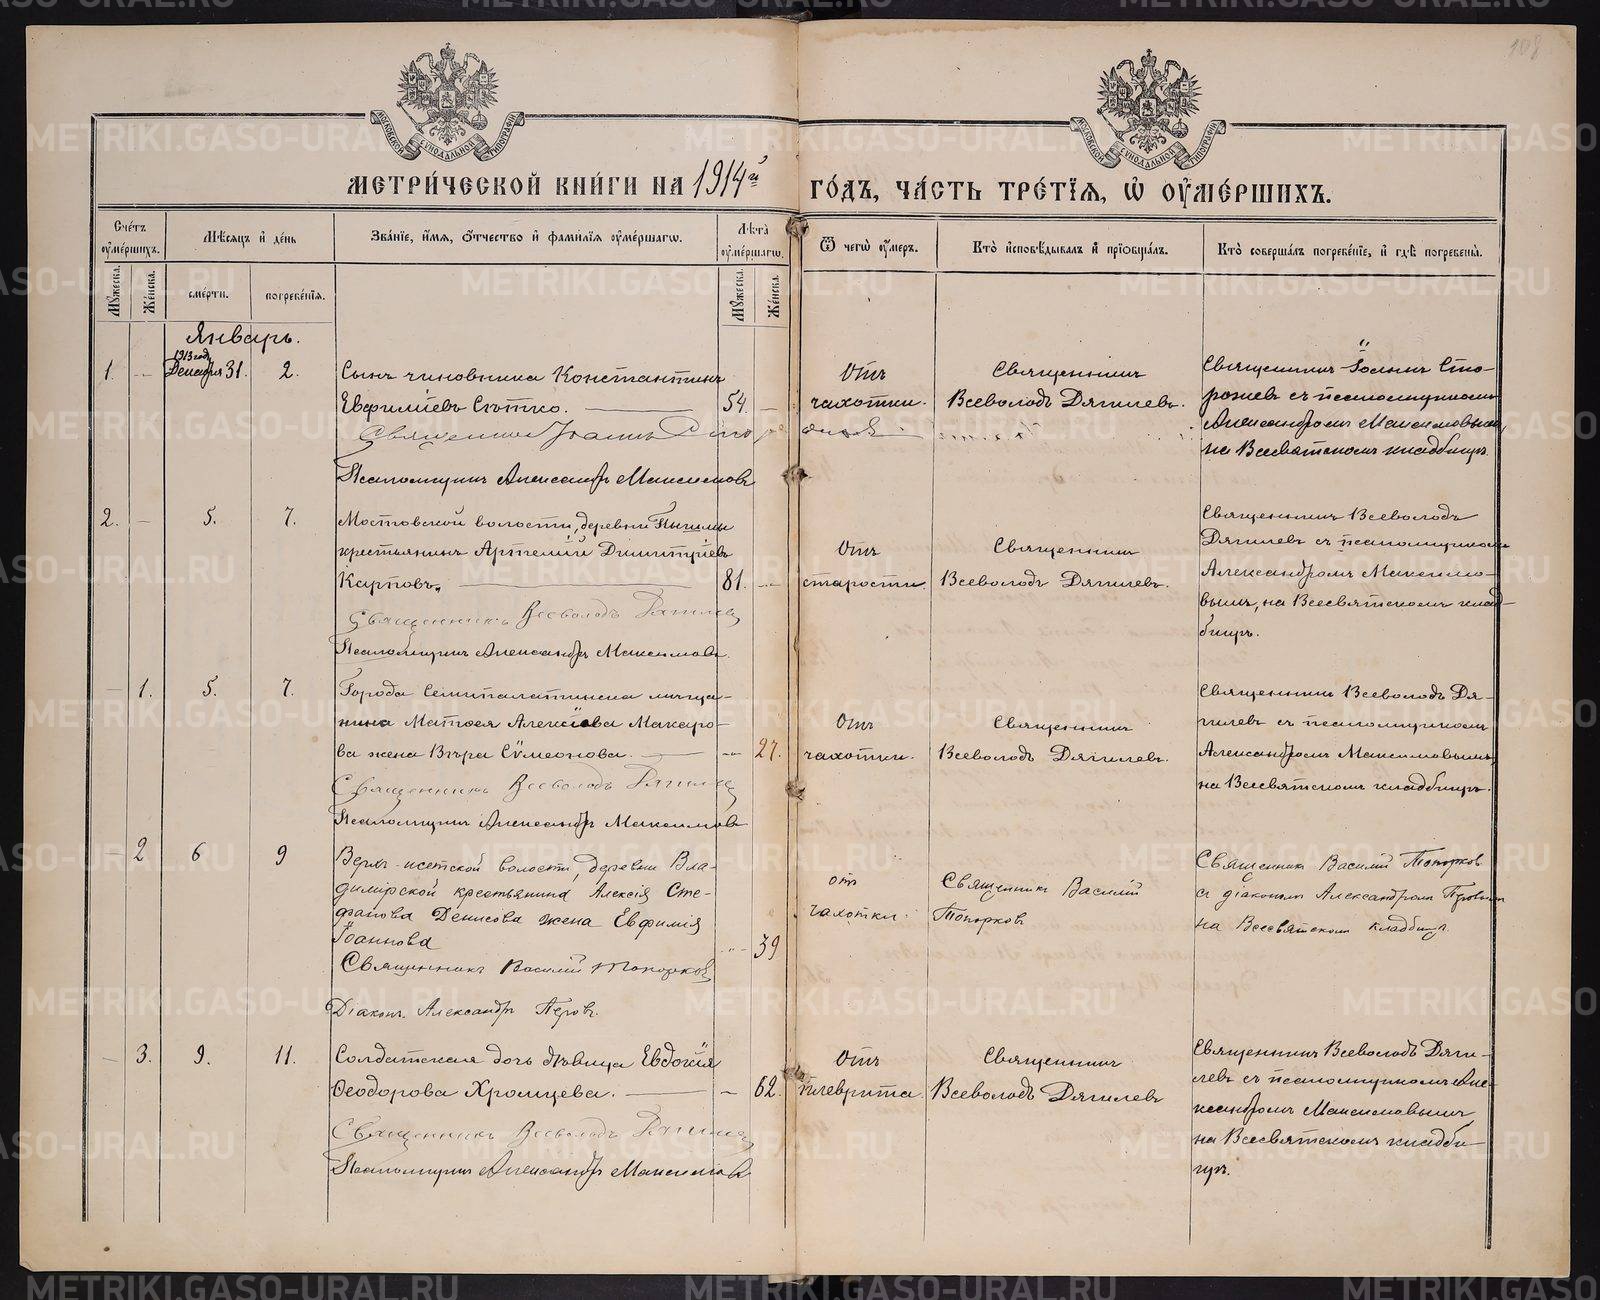 108
МОСКОВСКОЙ СѴНОДАЛЬНОЙ ТИПОГРАФІИ
МОСКОВСКОЙ СѴНОДАЛЬНОЙ ТИПОГРАФІИ
МЕТРИ́ЧЕСКОЙ КНИ́ГИ НА 1914й ГО́ДЪ, ЧА́СТЬ ТРЕ́ТІѦ, Ѡ҆ ОУ҆МЕ́РШИХЪ.
Сче́тъ оу҆ме́ршихъ.
Мѣ́сяцъ и҆ де́нь
Зва́нїе, и҆́мѧ, ѻ҆́тчество и҆ фами́лїѧ оу҆ме́ршагѡ.
Лѣ́та оу҆ме́ршагѡ.
Ѿ чегѡ̀ оу҆́меръ.
Кто̀ и҆сповѣ́дывалъ и҆ прїѡбща́лъ.
Кто̀ соверша́лъ погребе́нїе, и҆ гдѣ̀ погребены̀.
Мꙋ́жеска.
Же́нска.
сме́рти.
погребе́нїѧ.
Мꙋ́жеска.
Же́нска.
Январь.
1913 годъ
1. - Декабря 31. 2.
Сынъ чиновника Константинъ
Евфиміевъ Сѣтко. 54. -
Священникъ Іоаннъ Сторожевъ
Псаломщикъ Александръ Максимовъ
Отъ
чахотки.
Священникъ
Всеволодъ Дягилевъ.
Священникъ Іоаннъ Сто-
рожевъ съ псаломщикомъ
Александромъ Максимовымъ,
на Всесвятскомъ кладбищѣ.
2. - 5. 7.
Мостовской волости, деревни Пышмы
крестьянинъ Артемій Димитріевъ
Карповъ. 81. -
Священникъ Всеволодъ Дягилевъ
Псаломщикъ Александръ Максимовъ.
Отъ
старости.
Священникъ
Всеволодъ Дягилевъ.
Священникъ Всеволодъ
Дягилевъ съ псаломщикомъ
Александромъ Максимо-
вымъ, на Всесвятскомъ клад-
бищѣ.
- 1. 5. 7.
Города Семипалатинска мѣща-
нина Матѳея Алексіева Макаро-
ва жена Вѣра Сѵмеонова. - 27.
Священникъ Всеволодъ Дягилевъ
Псаломщикъ Александръ Максимовъ
Отъ
чахотки.
Священникъ
Всеволодъ Дягилевъ.
Священникъ Всеволодъ Дя-
гилевъ съ псаломщикомъ
Александромъ Максимовымъ,
на Всесвятскомъ кладбищѣ.
- 2 6 9
Верхъ-исетской волости, деревни Вла-
димірской крестьянина Алексія Сте-
фанова Денисова жена Евфимія
Іоаннова - 39
Священникъ Василій Топорковъ
Діаконъ Александръ Перовъ.
отъ
чахотки.
Священникъ Василій
Топорковъ
Священникъ Василій Топорковъ
съ діакономъ Александромъ Перовымъ
на Всесвятскомъ кладбищѣ.
- 3. 9. 11.
Солдатская дочь дѣвица Евдокія
Ѳеодорова Хромцева. - 62.
Священникъ Всеволодъ Дягилевъ
Псаломщикъ Александръ Максимовъ
Отъ
плеврита.
Священникъ
Всеволодъ Дягилевъ
Священникъ Всеволодъ Дяги-
левъ съ псаломщикомъ Але-
ксандромъ Максимовымъ
на Всесвятскомъ кладби-
щѣ.
METRIKI.GASO-URAL.RU